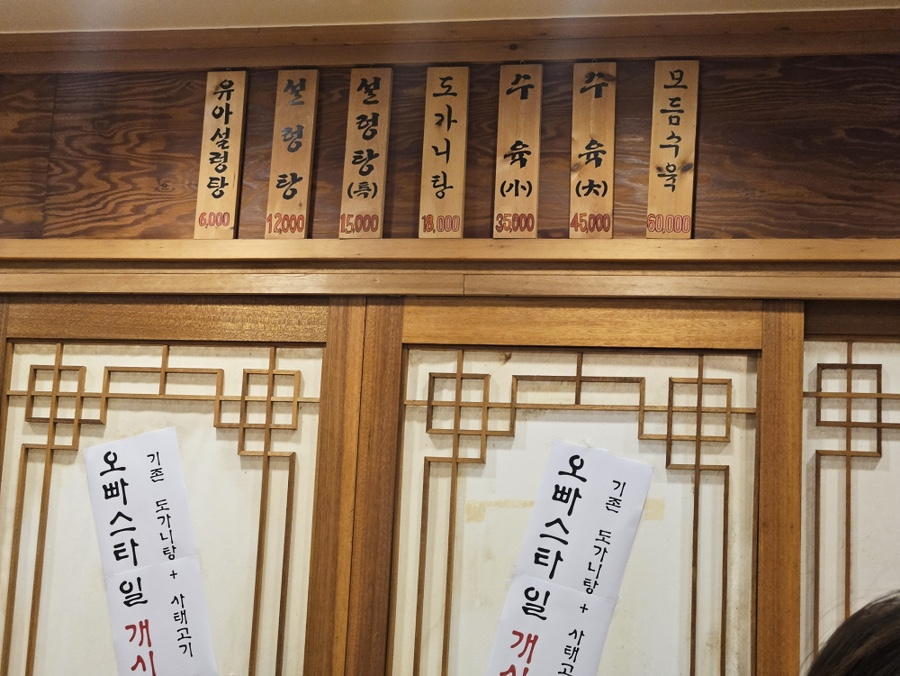 유아설렁탕
6,000
설렁탕
12,000
설렁탕(특)
15,000
도가니탕
18,000
수육(小)
35,000
수육(大)
45,000
모듬수육
60,000
기존 도가니탕 + 사태고기
오빠스타일 개시
기존 도가니탕 + 사태고
오빠스타일 개시